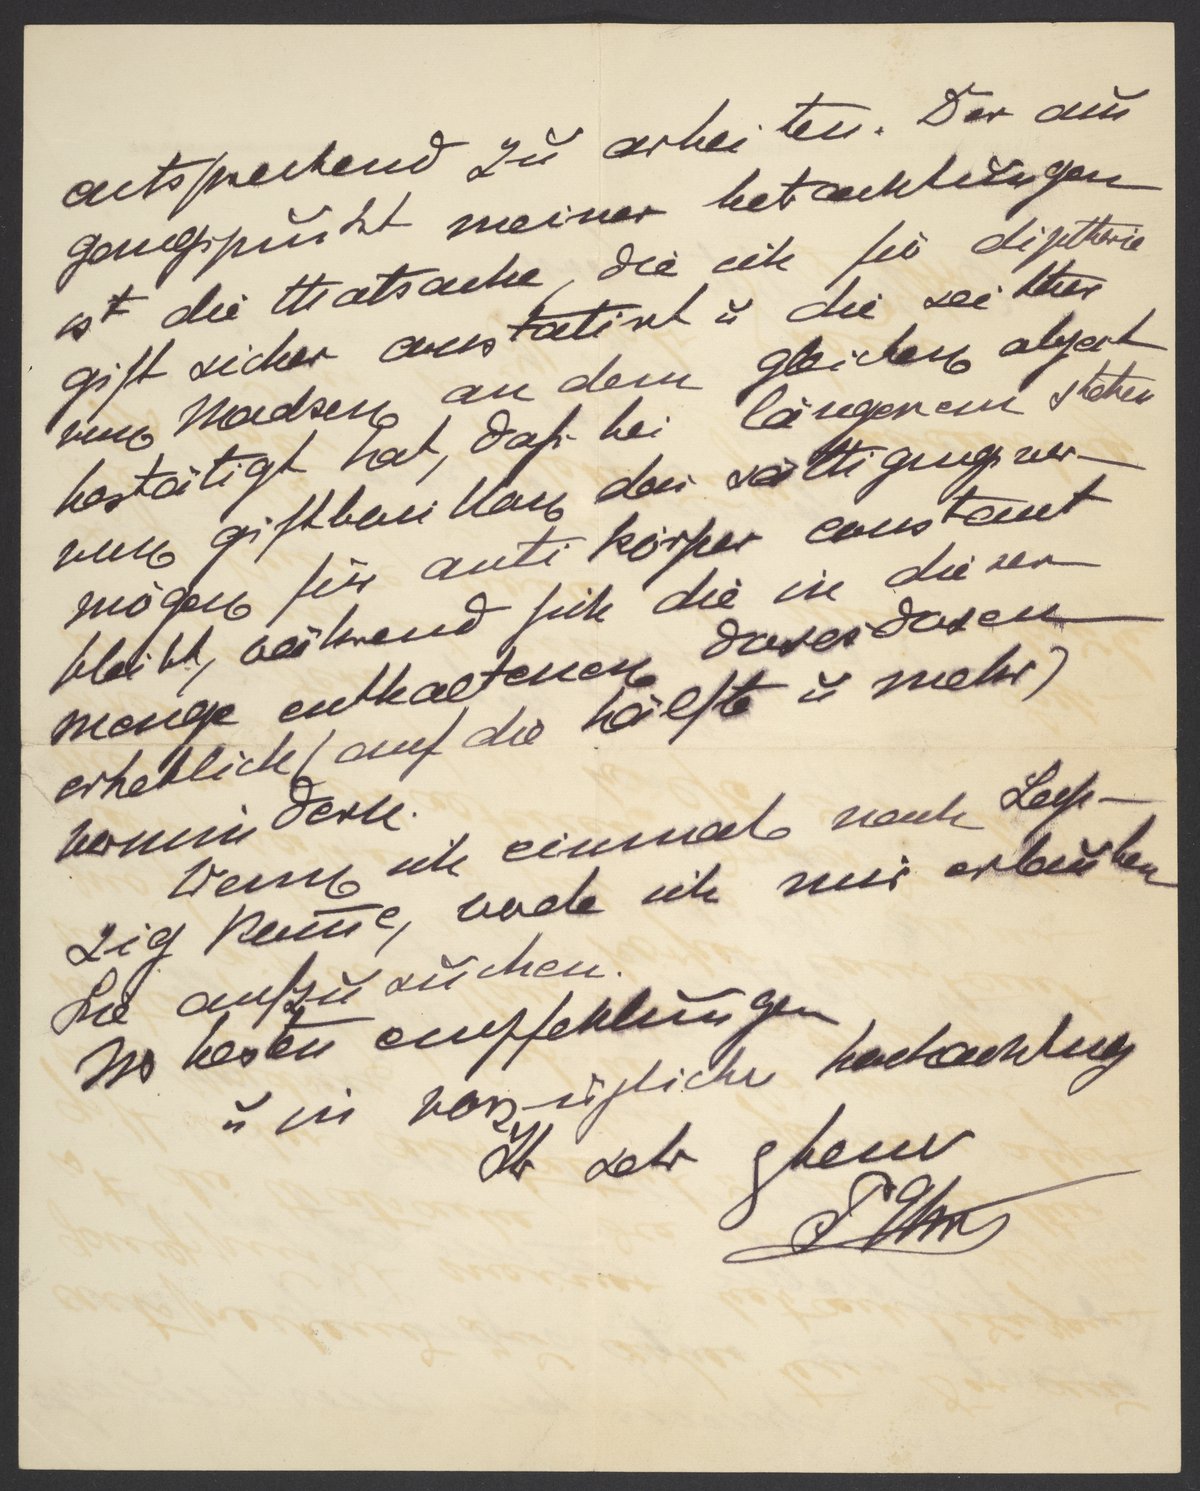 entsprechend zu arbeiten. Der aus
gangspunkt meiner betrachtungen
ist die thatsache, die ich für diphtherie
gift sicher constatirt u die seither
von Madsen an dem gleichen object
bestätigt hat, daß bei längerem stehen
von giftbouillon das sättigungsver-
mögen für anti körper constant
bleibt, während sich die in dieser
menge enthaltenen dosen
erheblich (auf die hälfte u mehr)
vermindern.
Wenn ich einmal nach Leip-
zig kom̄e, werde ich mir erlauben
Sie aufzusuchen.
M besten empfehlungen
u in vorzüglicher hochachtung
Ihr sehr ergbener
P Ehr